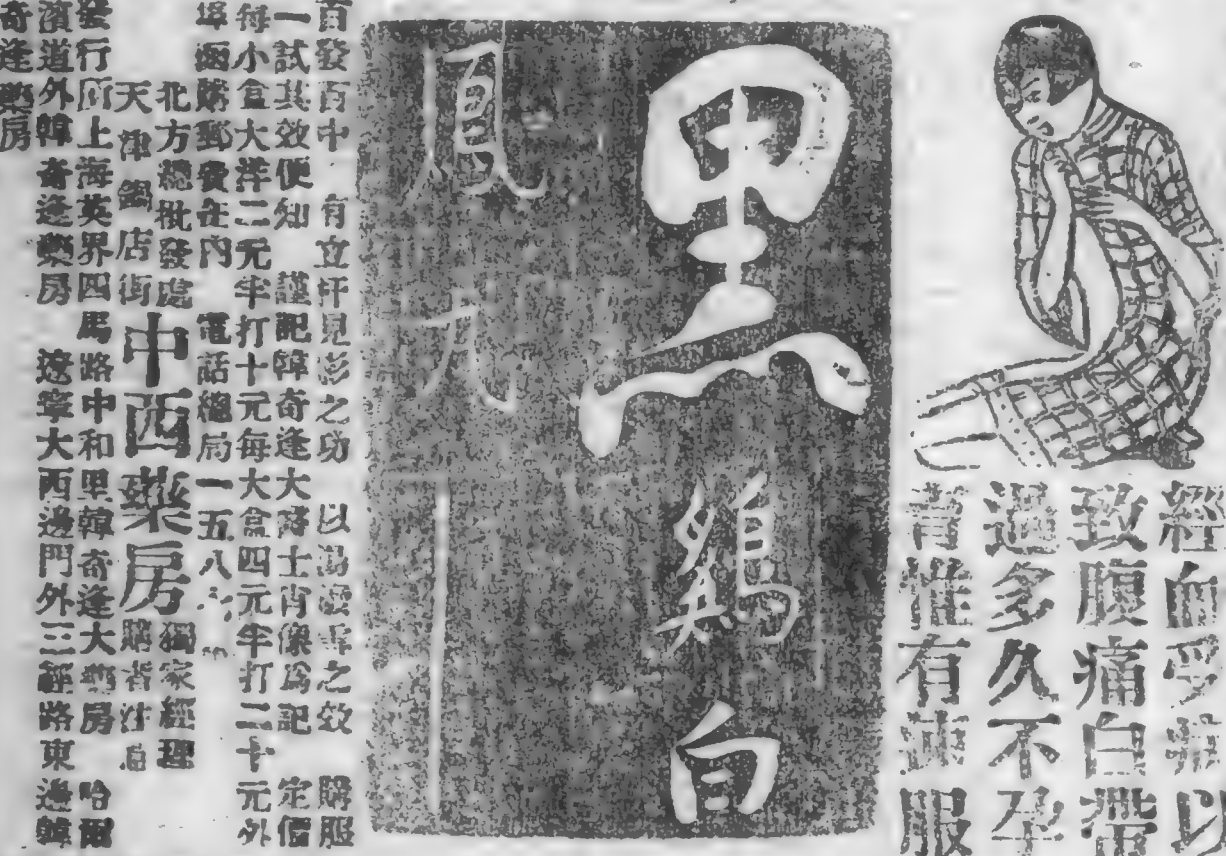 經血受病以
致腹痛白帶
過多久不孕
育惟有速服
黑鷄白
鳳丸
百發百中 有立竿見影之功 以湯潑雪之效 購服
一試其效便知 謹記韓奇逢大博士肖像爲記 定價
每小盒大洋二元半打十元每大盒四元半打二十元外
埠函購郵費在內 電話總局一五八
北方總批發處
天津鍋店街中西藥房獨家經理
購者注意
發行所上海英界四馬路中和里韓奇逢大藥房 哈爾
濱道外韓奇逢藥房 遼寧大西邊門外三經路東邊韓
奇逢藥房